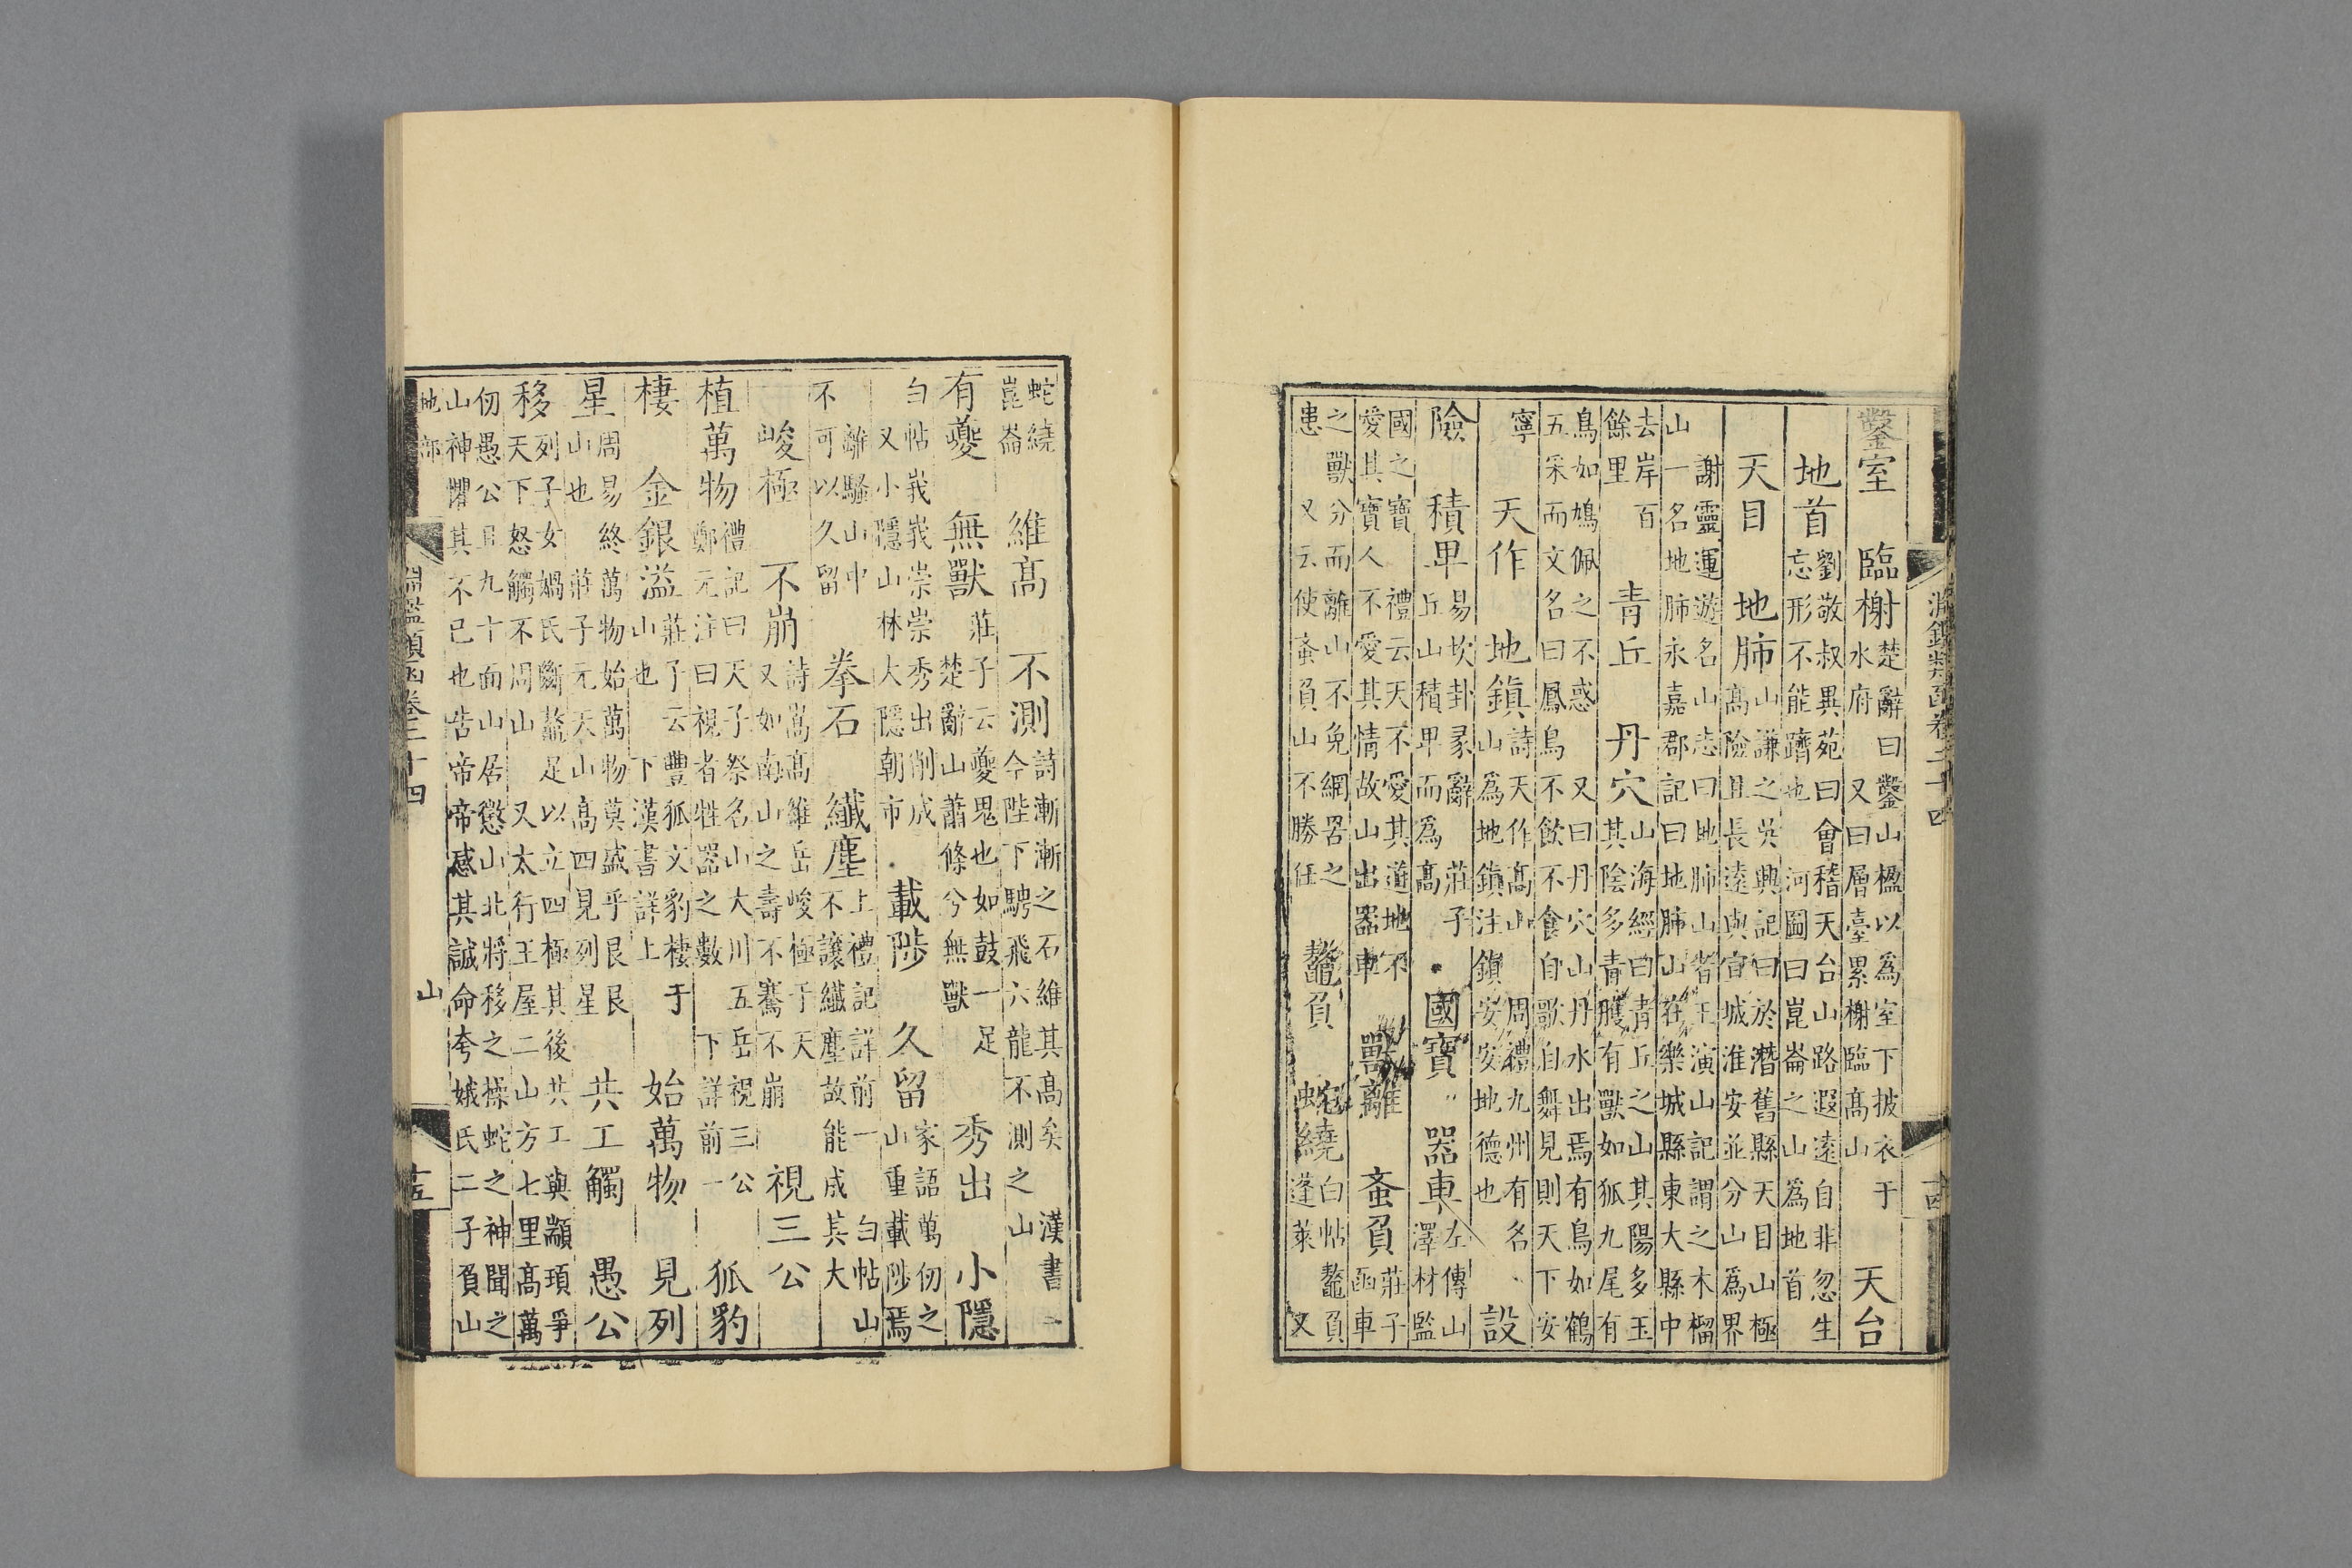 淵鑑類函卷二十四 十四
鑿室 臨榭 楚辭曰鑿山楹以爲室下披衣于水府 又曰層臺累榭臨髙山 天台
地首 劉敬叔異苑曰會稽天台山路遐遠自非忽生忘形不能躋也 河圖曰崑崙之山爲地首
天目 地肺 山謙之吳興記曰於潛舊縣天目山極髙險且長遠與宣城淮安並分山爲界
謝靈運遊名山志曰地肺山者王演山記謂之木榴山一名地肺永嘉郡記曰地肺山在樂城縣東大縣中
去岸百餘里 青丘 丹穴 山海經曰青丘之山其陽多玉其陰多青雘有獸如狐九尾有
鳥如鳩佩之不惑 又曰丹穴山丹水出焉有鳥如鶴五采而文名曰鳳鳥不飲不食自歌自舞見則天下安
寧 天作 地鎮 詩天作髙山 周禮九州有名山爲地鎮注鎮安安地德也 設
險 積卑 易坎卦彖辭 莊子丘山積卑而爲髙 國寶 器車 左傳山澤材監
國之寶 禮云天不愛其道地不愛其寶人不愛其情故山出器車 獸離 蚉負 莊子函車
之獸分而離山不免網罟之患 又云使蚉負山不勝任 鼇負 蛇繞 白帖鼇負蓬萊 又
蛇繞崑崙 維髙 不測 詩漸漸之石維其髙矣 漢書今陛下騁飛六龍不測之山
有夔 無獸 莊子云夔鬼也如鼓一足楚辭山蕭條兮無獸 秀出 小隱
白帖峩峩崇崇秀出削成又小隱山林大隱朝市 載陟 久留 家語萬仞之山重載陟焉
離騷山中不可以久留 拳石 纖塵 上禮記詳前 白帖山不讓纖塵故能成其大
峻極 不崩 詩嵩髙維岳峻極于天又如南山之壽不騫不崩 視三公
植萬物 禮記曰天子祭名山大川五岳視三公鄭元注曰視者牲器之數 下詳前一 狐豹
棲 金銀溢 莊子云豐狐文豹棲于山也 下漢書詳上 始萬物 見列
星 周易終萬物始萬物莫盛乎艮艮山也 莊子元天山髙四見列星 共工觸 愚公
移 列子女媧氏斷鼇足以立四極其後共工與顓頊爭天下怒觸不周山 又太行王屋二山方七里髙萬
仞愚公且九十面山居懲山北將移之操蛇之神聞之山神懼其不已也告帝帝感其誠命夸娥氏二子負山
地部 淵鑑類函卷二十四 山 十五